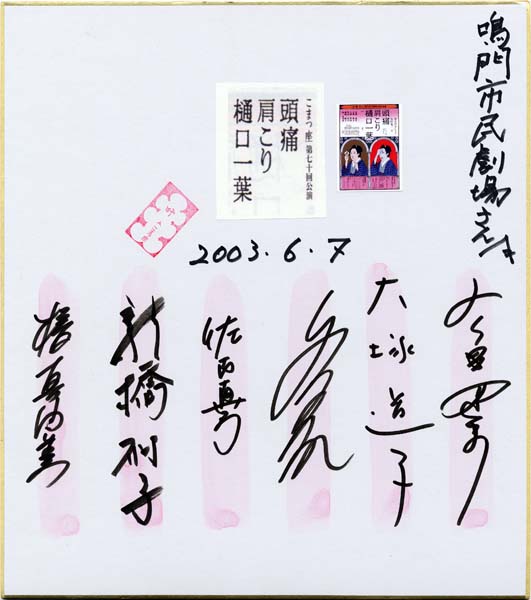 鳴門市民劇場さん江
こまつ座 第七十回公演
頭痛
肩こり
樋口一葉
頭痛
肩こり
樋口一葉
2003.6.7
大塚道子
佐古真弓
新橋耐子
椿真由美